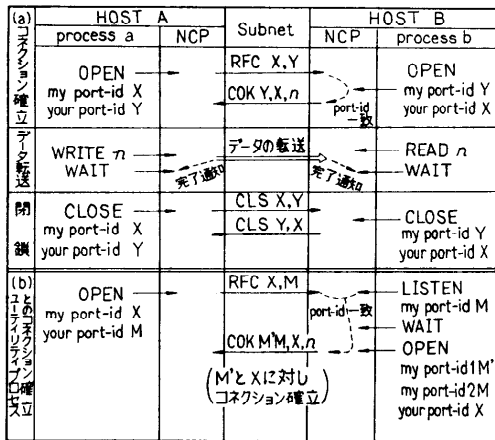 HOST A
Subnet
HOST B
process a
NCP
NCP
process b
(a)
コネクション確立
OPEN
my port-id X
your port-id Y
RFC X,Y
COK Y,X,n
port-id
一致
OPEN
my port-id Y
your port-id X
データ転送
WRITE n
WAIT
完了通知
データの転送
完了通知
READ n
WAIT
閉鎖
CLOSE
my port-id X
your port-id Y
CLS X,Y
CLS Y,X
CLOSE
my port-id Y
your port-id X
(b)
ユーティリティプロセス
とのコネクション確立
OPEN
my port-id X
your port-id M
RFC X,M
port-id一致
COK M'M,X,n
(M'とXに対し
コネクション確立)
LISTEN
my port-id M
WAIT
OPEN
my port-id1M'
my port-id2M
your port-id X